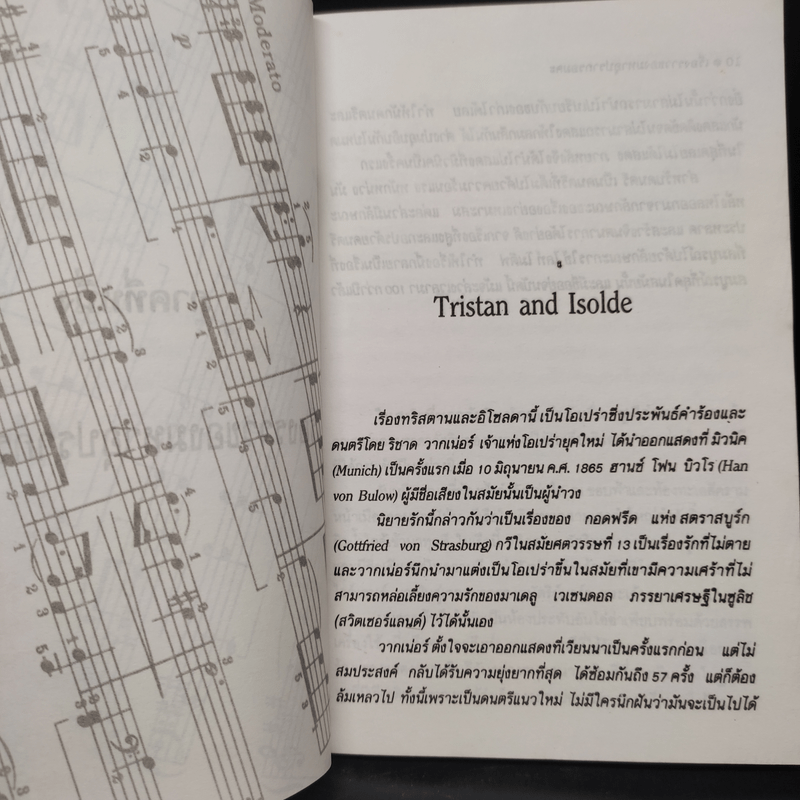 Moderato
p
Tristan and Isolde
เรื่องทริสตานและอิโซลดานี้ เป็นโอเปร่าซึ่งประพันธ์คำร้องและ
ดนตรีโดย ริชาด วากเน่อร์ เจ้าแห่งโอเปร่ายุคใหม่ ได้นำออกแสดงที่ มิวนิค
(Munich) เป็นครั้งแรก เมื่อ 10 มิถุนายน ค.ศ. 1865 ฮานซ์ โฟน บิวโร (Han
von Bulow) ผู้มีชื่อเสียงในสมัยนั้นเป็นผู้นำวง
นิยายรักนี้กล่าวกันว่าเป็นเรื่องของ กอดฟรีด แห่ง สตราสบูร์ก
(Gottfried von Strasburg) กวีในสมัยศตวรรษที่ 13 เป็นเรื่องรักที่ไม่ตาย
และวากเน่อร์นึกนำมาแต่งเป็นโอเปร่าขึ้นในสมัยที่เขามีความเศร้าที่ไม่
สามารถหล่อเลี้ยงความรักของมาเดลู เวเซนดอล ภรรยาเศรษฐีในซูลิช
(สวิตเซอร์แลนด์) ไว้ได้นั้นเอง
วากเน่อร์ ตั้งใจจะเอาออกแสดงที่เวียนนาเป็นครั้งแรกก่อน แต่ไม่
สมประสงค์ กลับได้รับความยุ่งยากที่สุด ได้ซ้อมกันถึง 57 ครั้ง แต่ก็ต้อง
ล้มเหลวไป ทั้งนี้เพราะเป็นดนตรีแนวใหม่ ไม่มีใครนึกฝันว่ามันจะเป็นไปได้